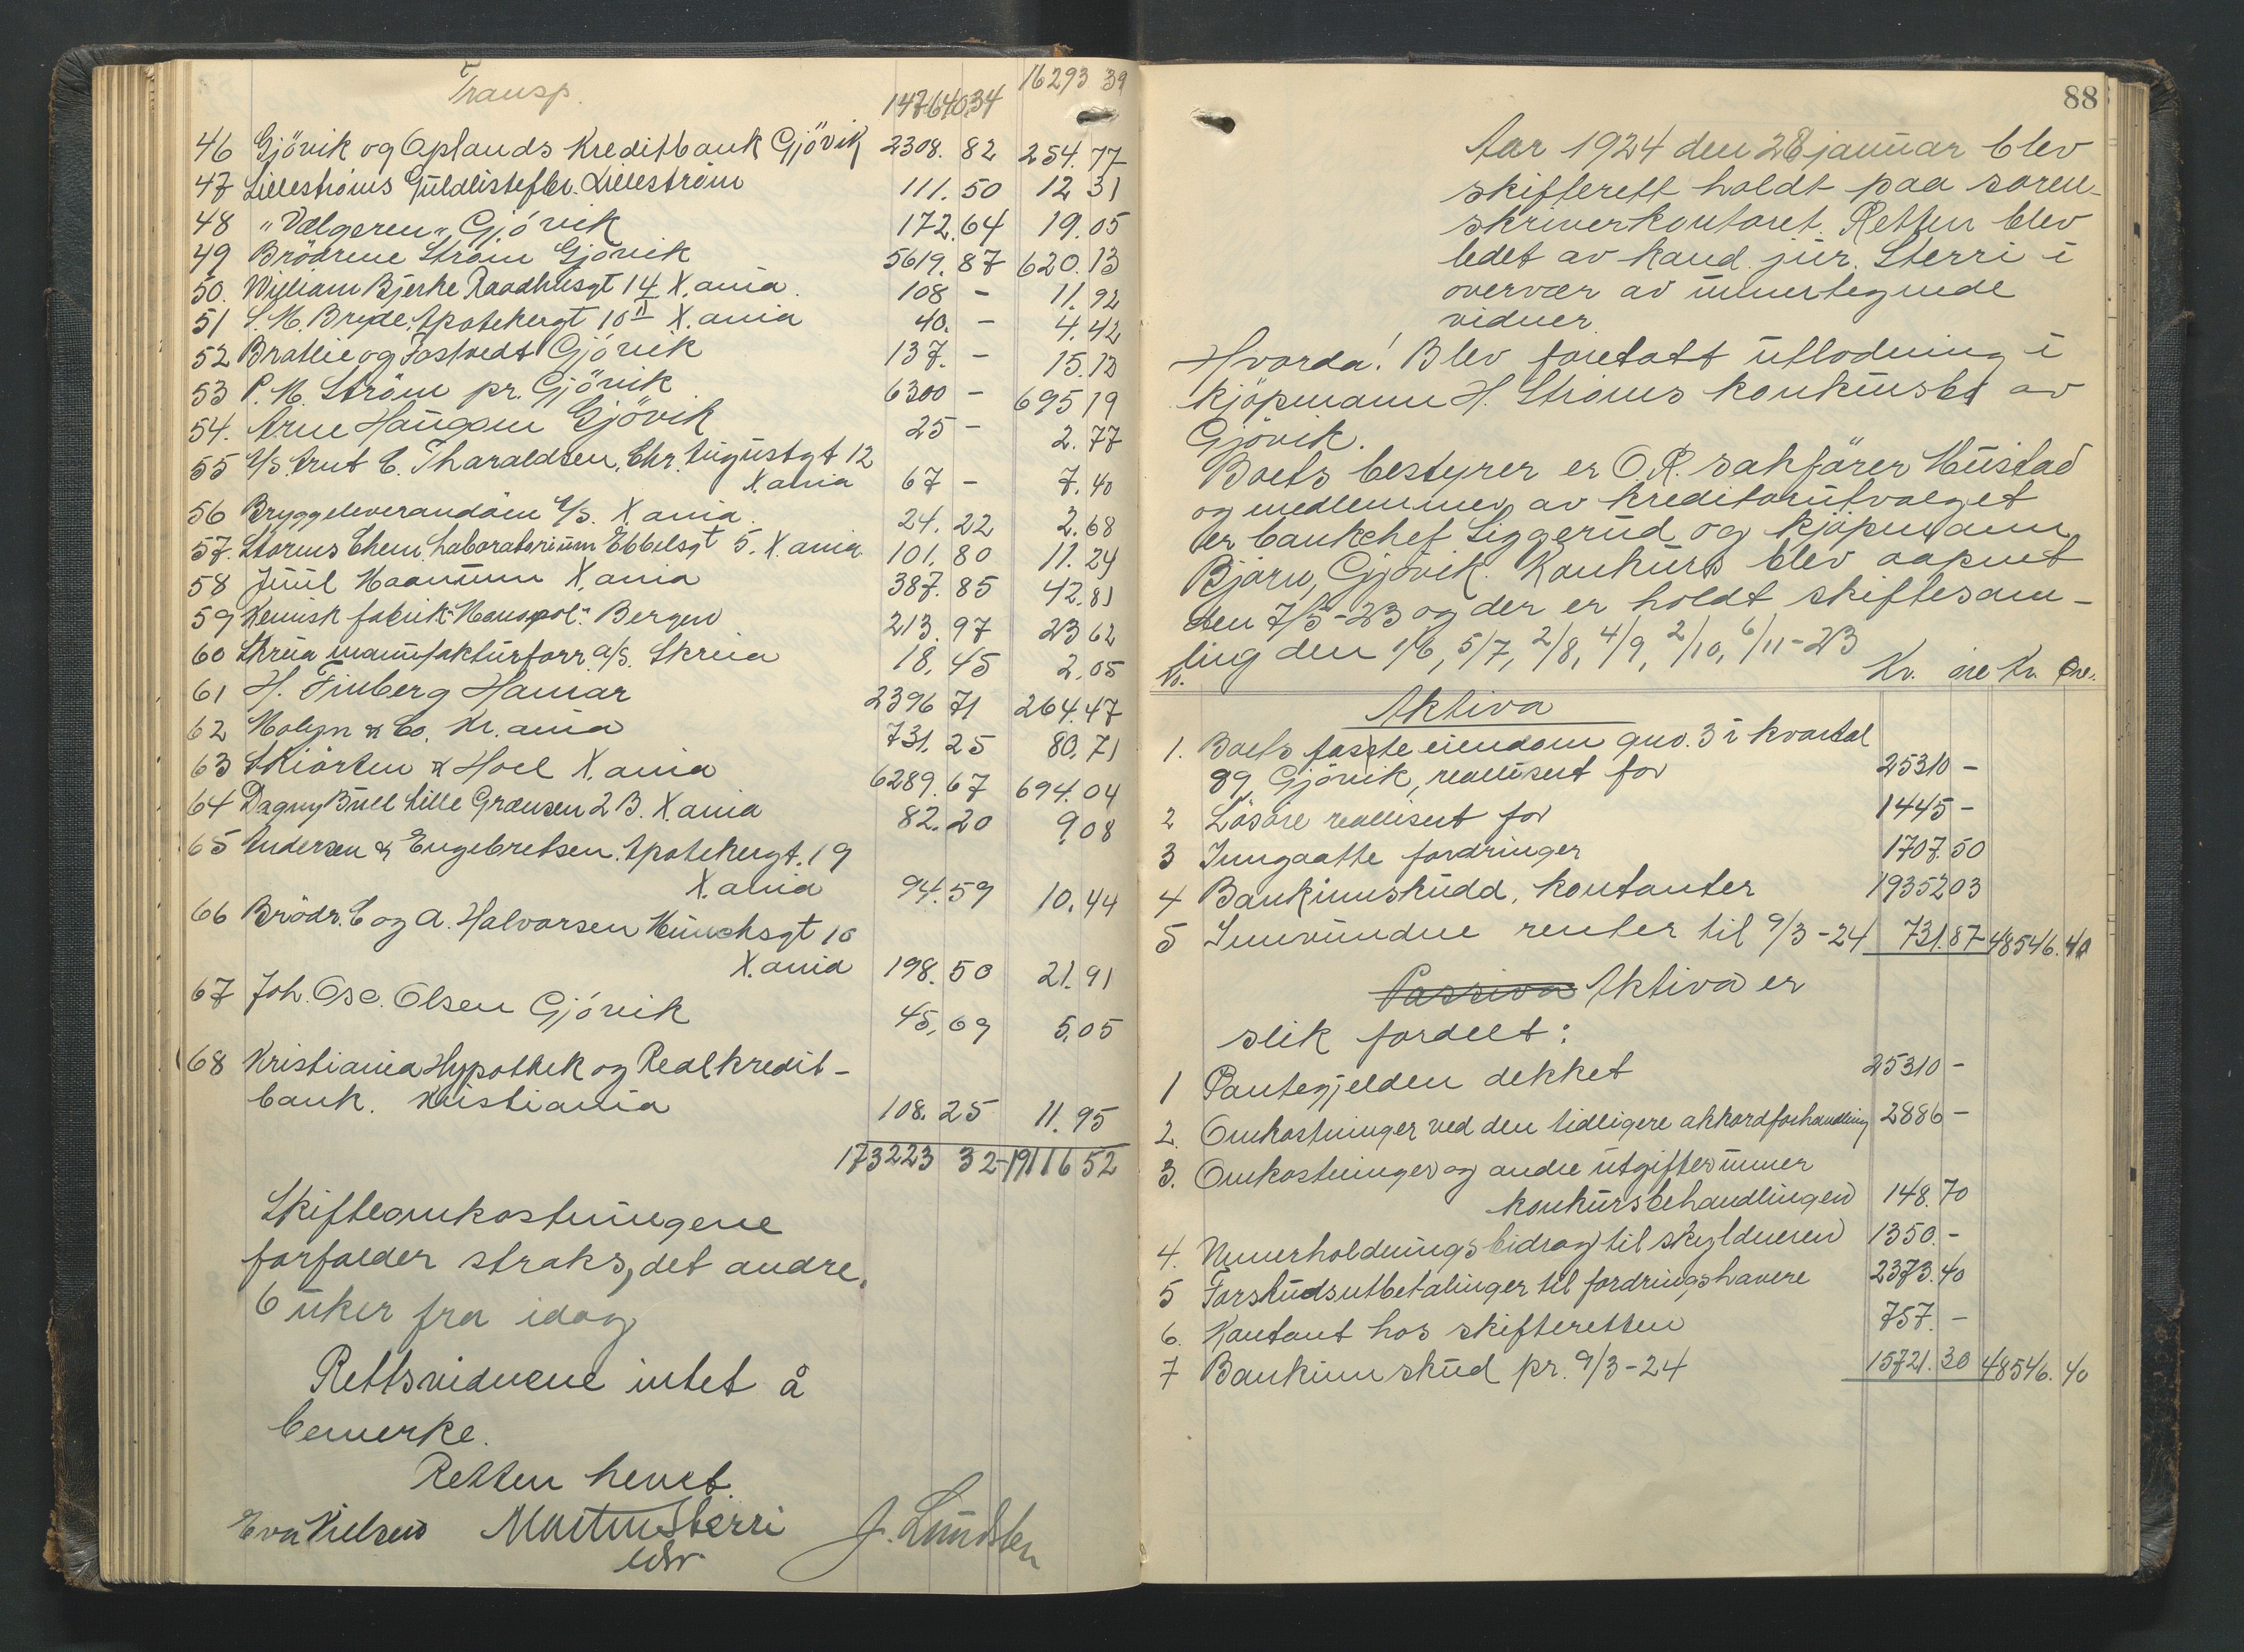 Transp.
147640 34 16293 39
46 Gjövik og Oplands Kreditbank Gjövik 2308. 82 254. 77
47 Lilleströms Guldlistefbr. Lilleström 111. 50 12 31
48 "Vælgeren" Gjövik 172. 64 19. 05
49 Brödrene Ström Gjövik 5619. 87 620. 13
50. William Bjerke Raadhusgt 14 X.ania. 108 - 11. 92
51 S. M. Bryde, Apotekergt 10 II X.ania 40. - 4. 42
52 Bratlie og Fostvedt Gjövik 137. - 15. 13
53 P. M. Ström pr. Gjövik 6300 - 695 19
54. Arne Haugom Gjövik 25 - 2. 77
55 A/S. Knut E. Tharaldsen, Chr. Augustgt 12
X.ania 67 - 7. 40
56 Bryggeleverandören A/S. X.ania. 24. 22 2. 68
57. Storms Chem. Laboratorium Ebbelsgt 5. X.ania 101. 80 11. 24
58 Juul Haanum X.ania 387. 85 42. 81
59 Kemisk fabrik "Hanspol". Bergen 213. 97 23 62
60 Skreia manufakturforr. a/s. Skreia 18. 45 2. 05
61 H. Finberg Hamar 2396 71 264. 47
62 Molyn & Co. Kr.ania 731. 25 80. 71
63 Skiörten & Hoel X.ania 6289. 67 694. 04
64 Dagny Buel Lille Grænsen 2 B. X.ania 82. 20 9. 08
65 Andersen & Engebretsen. Apotekergt. 19
X.ania 94. 59 10. 44
66 Brödr. E og A. Halvorsen Munchsgt 10
X.ania 198. 50 21. 91
67 Joh. Osc. Olsen Gjövik 45, 69 5, 05
68 Kristiania Hypothek og Realkredit-
bank. Kristiania 108. 25 11. 95
173223 32 - 19116 52
Skifteomkostningene
forfalder straks, det andre
6 uker fra idag
Rettsvidnene intet å
bemerke.
Retten hevet.
Eva Nielsen Martin Sterri J. Lundsten
88
Aar 1924 den 28 januar blev
skifterett holdt paa soren-
skriverkontoret. Retten blev
ledet av kand. jur. Sterri i
overvær av unnertegnede
vidner.
Hvorda! Blev foretatt utlodning i
kjöpmann H. Ströms konkursbo av
Gjövik.
Boets bestyrer er O.R. sakförer Hustad
og medlemmer av kreditorutvalget
er bankchef Siggerud og kjöpmann
Bjørn, Gjövik. Konkurs blev aapnet
den 7/5-23 og der er holdt skiftesam-
ling den 1/6, 5/7, 2/8, 4/9, 2/10, 6/11-23
No. Kr. øre Kr. Øre.
Aktiva
1. Boets faste eiendom gno. 3 i kvartal
89, Gjövik, realisert for 25310 -
2 Lösöre realisert for 1445 -
3 Inngaatte fordringer 1707. 50
4 Bankinnskudd, kontanter 19352 03
5 Innvundne renter til 9/3-24 731. 87 48546. 40
Passiva Aktiva er
slik fordelt:
1 Pantegjelden dekket 25310 -
2. Omkostninger ved den tidligere akkordforhandling 2886 -
3. Omkostninger og andre utgifter unner
konkursbehandlingen 148. 70
4. Unnerholdningsbidrag til skyldneren 1350. -
5 Forskudsutbetalinger til fordringshavere 2373. 40
6. Kontant hos skifteretten 757. -
7 Bankinnskud pr. 9/3-24 15721. 30 48546. 40